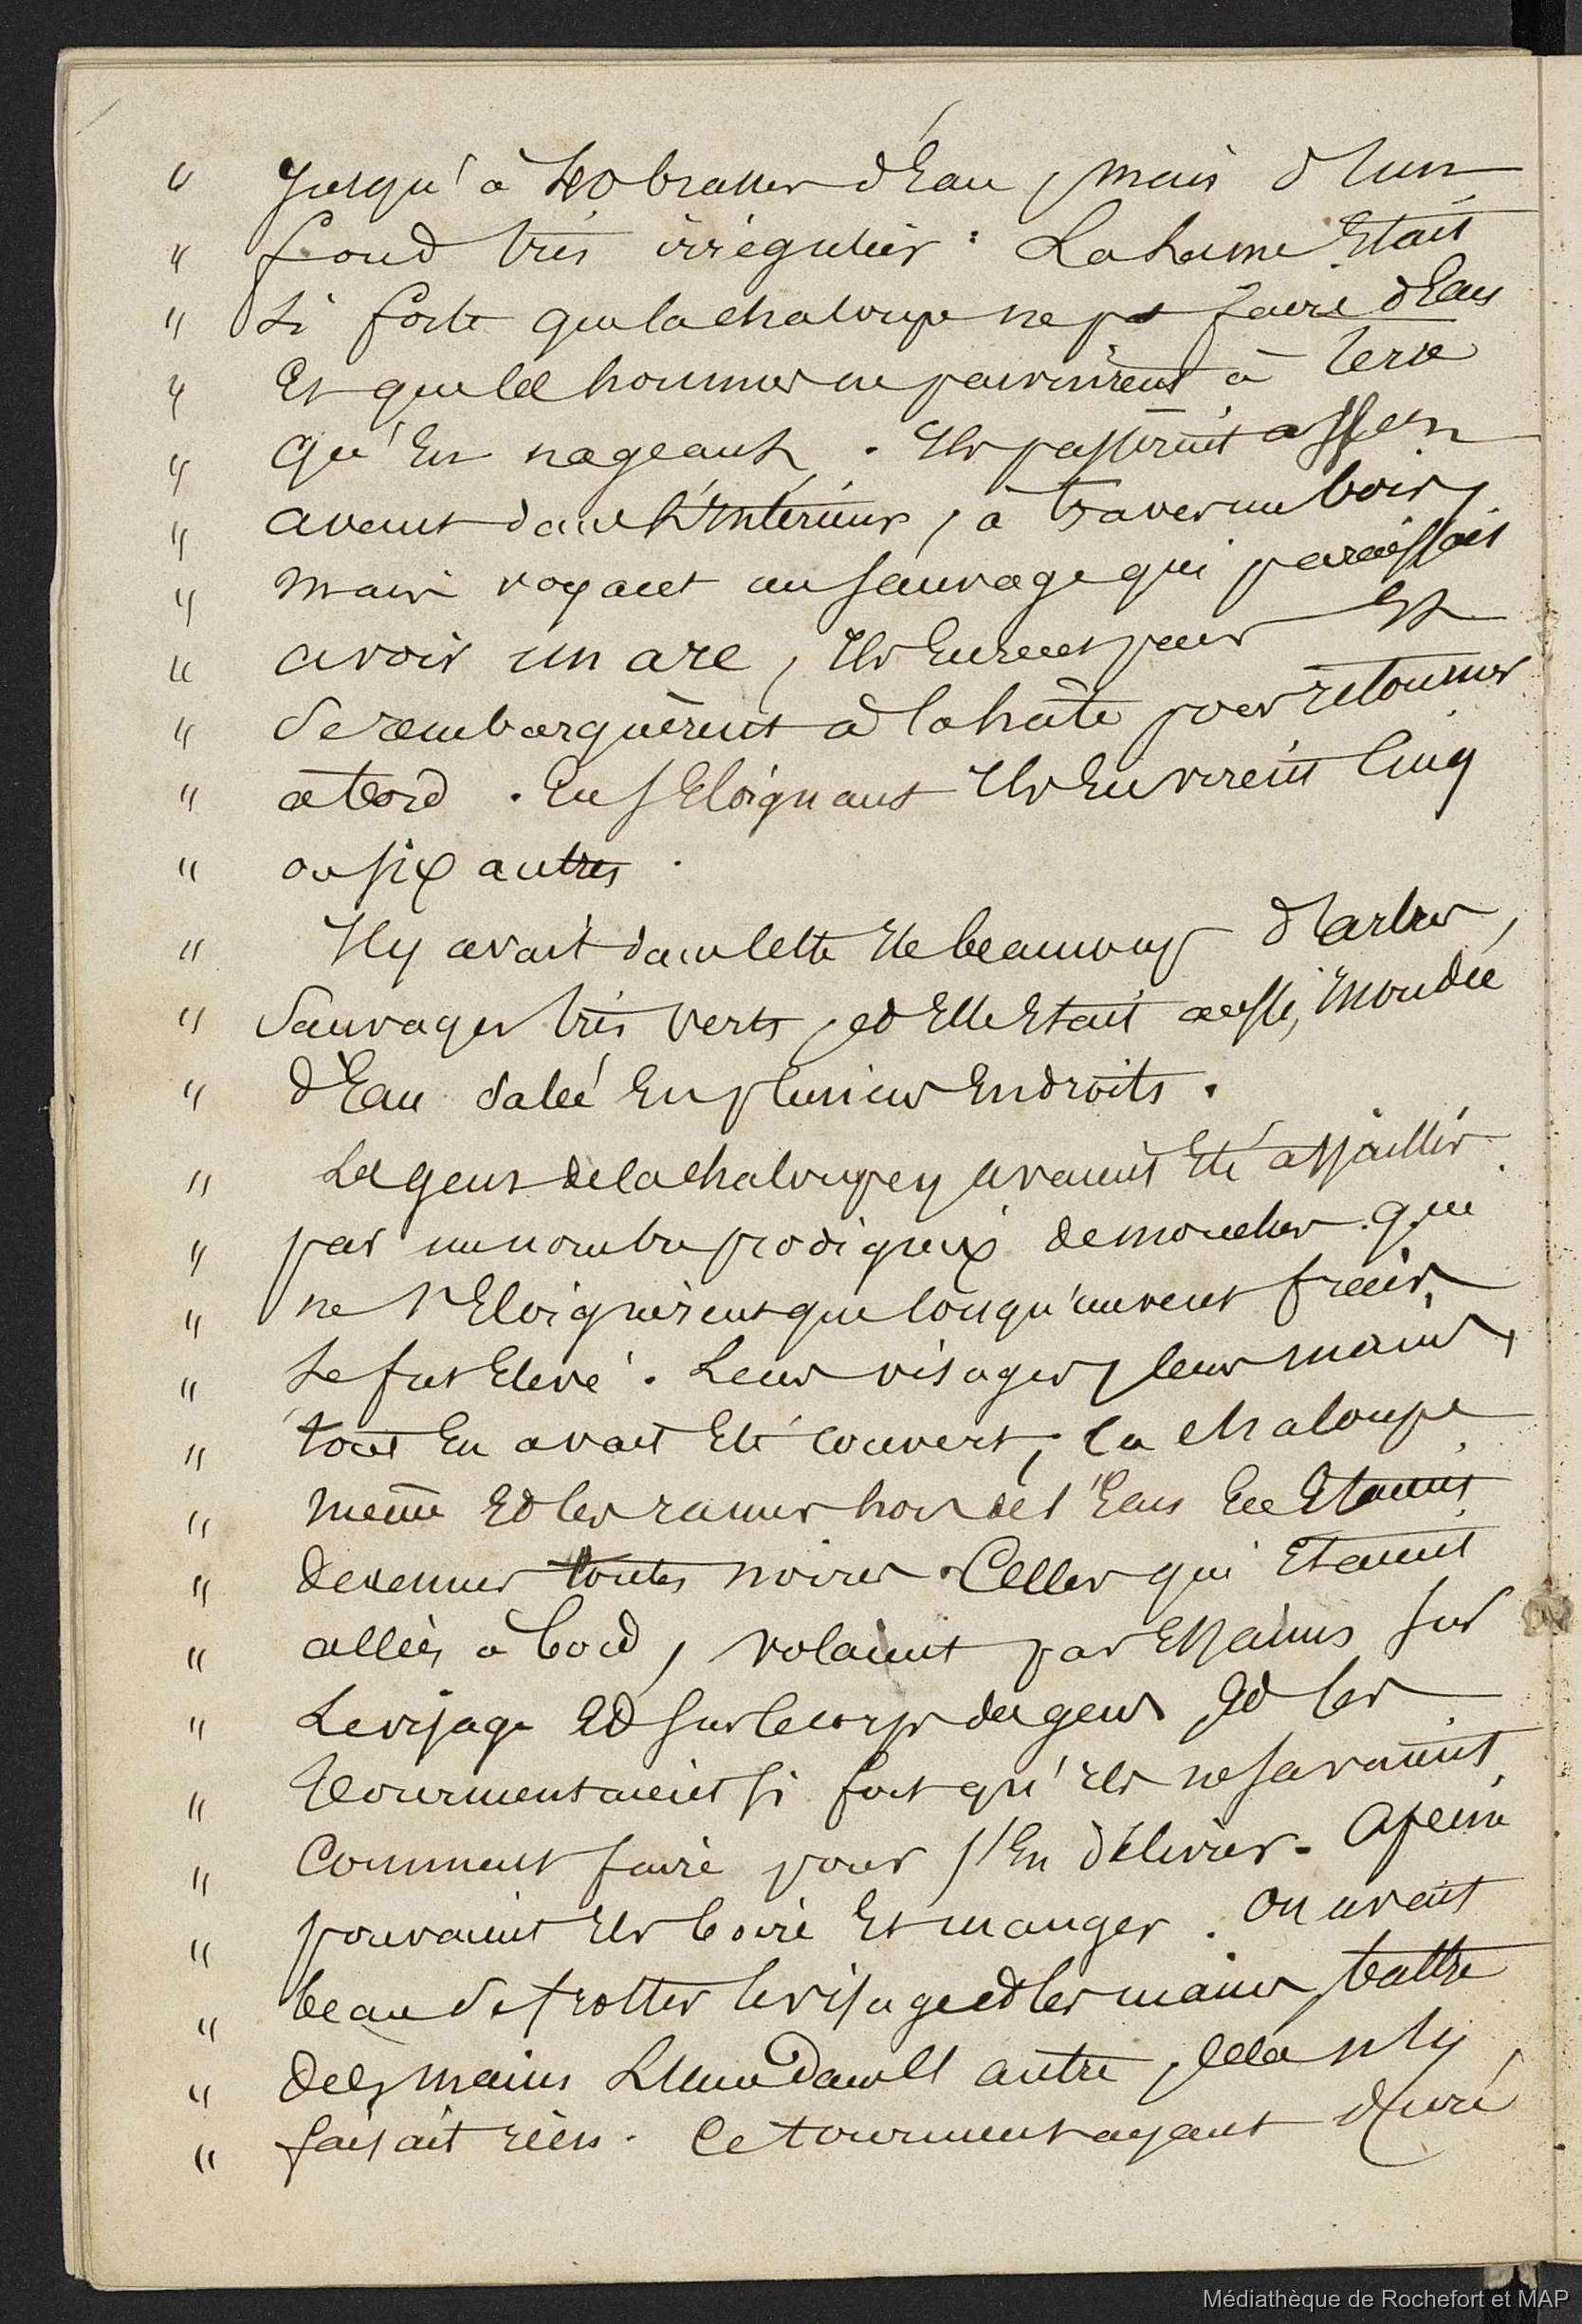 " Jusqu'à 40 brasses d'Eau, mais d'un
" fond très irrégulier : La Lame Etait
" Si forte que la chaloupe ne put faire d'Eau
" Et que les hommes ne parvinrent à terre
" Qu'En nageant. Ils passèrent assez
" avant dans l'Intérieur, à travers un bois,
" mais voyant un Sauvage qui paraissait
" avoir un arc, Ils Eurent peur Et
" Se rembarquèrent à la hâte pour retourner
" à bord. En s'Eloignant Ils En virent Cinq
" ou six autres.
" Il y avait dans cette Ile beaucoup d'arbres,
" Sauvages très verts, Et Elle Etait aussi, inondée
" d'Eau Salée En plusieurs Endroits.
" Les gens de la chaloupe y avaient Eté assaillis
" par un nombre prodigieux de mouches que
" ne s'Eloignèrent que lorsqu'un vent frais,
" Se fut Elevé. Leurs visages, leurs mains,
" tout En avait Eté couvert, la chaloupe
" même Et les rames hors de l'Eau En Etaient
" devenues toutes noires. Celles qui Etaient
" allées à bord, volaient par Essaims sur
" Le visage Et sur le corps des gens Et les
" tourmentaient si fort qu'ils ne savaient
" Comment faire pour s'En délivrer. A peine
" pouvaient Ils boire Et manger. On avait
" beau Se frotter le visage Et les mains, battre
" des mains L'une dans l'autre, Cela n'y
" faisait rien. Ce tourment ayant duré
Médiathèque de Rochefort et MAP